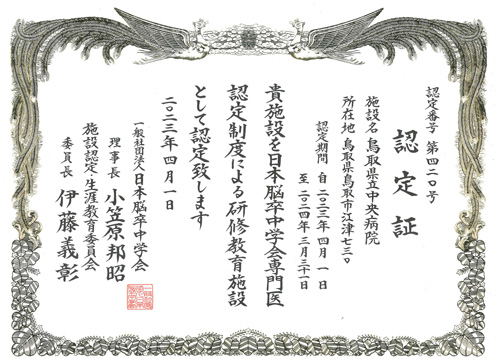 認定番号 第四二〇号
認定証
施設名 鳥取県立中央病院
所在地 鳥取県鳥取市江津七三〇
認定期間 自 二〇二三年四月一日
至 二〇二四年三月三十一日
貴施設を日本脳卒中学会専門医
認定制度による研修教育施設
として認定致します
二〇二三年四月一日
一般社団法人日本脳卒中学会
理事長 小笠原邦昭
施設認定・生涯教育委員会
委員長 伊藤義彰